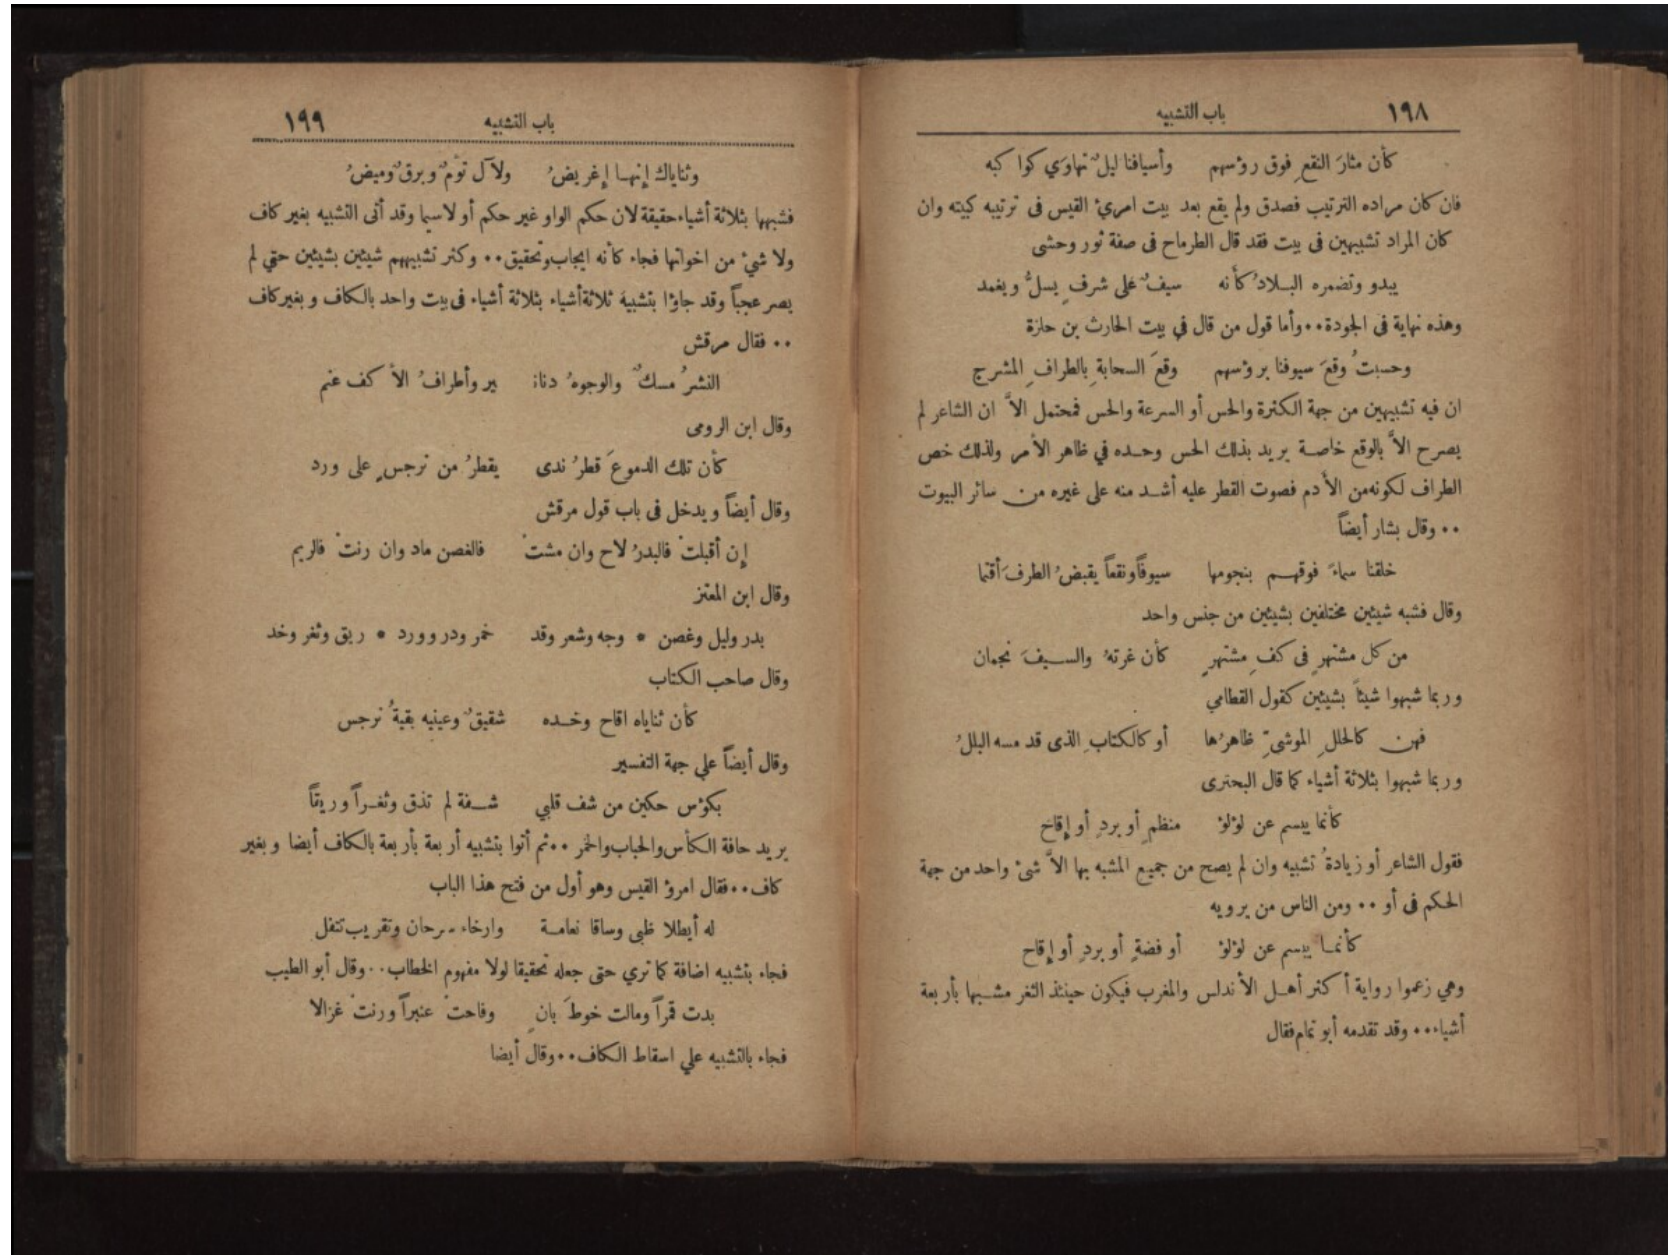 ١٩٨
باب التشبيه
كأن مثارَ النقعِ فوق رؤسهم وأسيافنا ليلٌ تهاوَي كواكبه
فان كان مراده الترتيب فصدق ولم يقع بعد بيت امرئ القيس فى ترتيبه كبيته وان
كان المراد تشبيهين فى بيت فقد قال الطرماح فى صفة ثور وحشى
يبدو وتضمره البلادُ كأنه سيفٌ عَلى شرفٍ يسلُّ ويغمد
وهذه نهاية فى الجودة٠٠وأما قول من قال في بيت الحارث بن حلزة
وحسبتُ وقعَ سيوفنا برؤسهم وقعَ السحابةِ بالطرافِ المشرج
ان فيه تشبيهين من جهة الكثرة والحس أو السرعة والحس فمحتمل الاَّ ان الشاعر لم
يصرح الاَّ بالوقع خاصة يريد بذلك الحس وحده في ظاهر الأمر ولذلك خص
الطراف لكونه من الأدم فصوت القطر عليه أشد منه على غيره من سائر البيوت
٠٠ وقال بشار أيضاً
خلقنا سماءً فوقهم بنجومها سيوفاً ونقعاً يقبضُ الطرفَ أقتما
وقال فشبه شيئين مختلفين بشيئين من جنس واحد
من كل مشتهرٍ فى كفِ مشتهرٍ كأن غرتهُ والسيفَ نجمان
وربما شبهوا شيئاً بشيئين كقول القطامي
فهن كالحللِ الموشيِّ ظاهرُها أو كالكتابِ الذى قد مسه البللُ
وربما شبهوا بثلاثة أشياء كما قال البحترى
كأنما يبسم عن لؤلؤ منظمٍ أو بردٍ أو إقاح
فقول الشاعر أو زيادةُ تشبيه وان لم يصح من جميع المشبه بها الاَّ شئ واحد من جهة
الحكم فى أو ٠٠ ومن الناس من يرويه
كأنما يبسم عن لؤلؤ أو فضةٍ أو بردٍ أو إقاح
وهي زعموا رواية أكثر أهل الأندلس والمغرب فيكون حينئذ الثغر مشبها بأربعة
أشياء٠٠٠ وقد تقدمه أبو تمام فقال
١٩٩
باب التشبيه
وثناياك إنها إغريضُ ولآل تؤمٌ وبرقٌ وميضُ
فشبهها بثلاثة أشياء حقيقة لان حكم الواو غير حكم أو لا سيما وقد أتى التشبيه بغير كاف
ولا شئ من اخواتها فجاء كأنه ايجاب وتحقيق٠٠ وكثر تشبيههم شيئين بشيئين حتي لم
يصر عجباً وقد جاؤا بتشبيه ثلاثة أشياء بثلاثة أشياء فى بيت واحد بالكاف وبغير كاف
٠٠ فقال مرقش
النشرُ مسكٌ والوجوهُ دنانير وأطرافُ الأكف عنم
وقال ابن الرومى
كأن تلك الدموعَ قطرُ ندى يقطرُ من نرجسٍ على ورد
وقال أيضاً ويدخل فى باب قول مرقش
إن أقبلتْ فالبدرُ لاح وان مشتْ فالغصن ماد وان رنتْ فالريم
وقال ابن المعتز
بدر وليل وغصن * وجه وشعر وقد خمر ودر وورد * ريق وثغر وخد
وقال صاحب الكتاب
كأن ثناياه اقاح وخده شقيقٌ وعينيه بقيةُ نرجس
وقال أيضاً علي جهة التفسير
بكؤس حكين من شف قلبي شفة لم تذق وثغراً وريقاً
يريد حافة الكأس والحباب والخمر ٠٠ ثم أتوا بتشبيه أربعة بأربعة بالكاف أيضا وبغير
كاف٠٠فقال امرؤ القيس وهو أول من فتح هذا الباب
له أيطلا ظبى وساقا نعامة وارخاء سرحان وتقريب تتفل
فجاء بتشبيه اضافة كما تري حتى جعله تحقيقا لولا مفهوم الخطاب٠٠وقال أبو الطيب
بدت قمراً ومالت خوطَ بانٍ وفاحتْ عنبراً ورنتْ غزالا
فجاء بالتشبيه علي اسقاط الكاف٠٠وقال أيضا